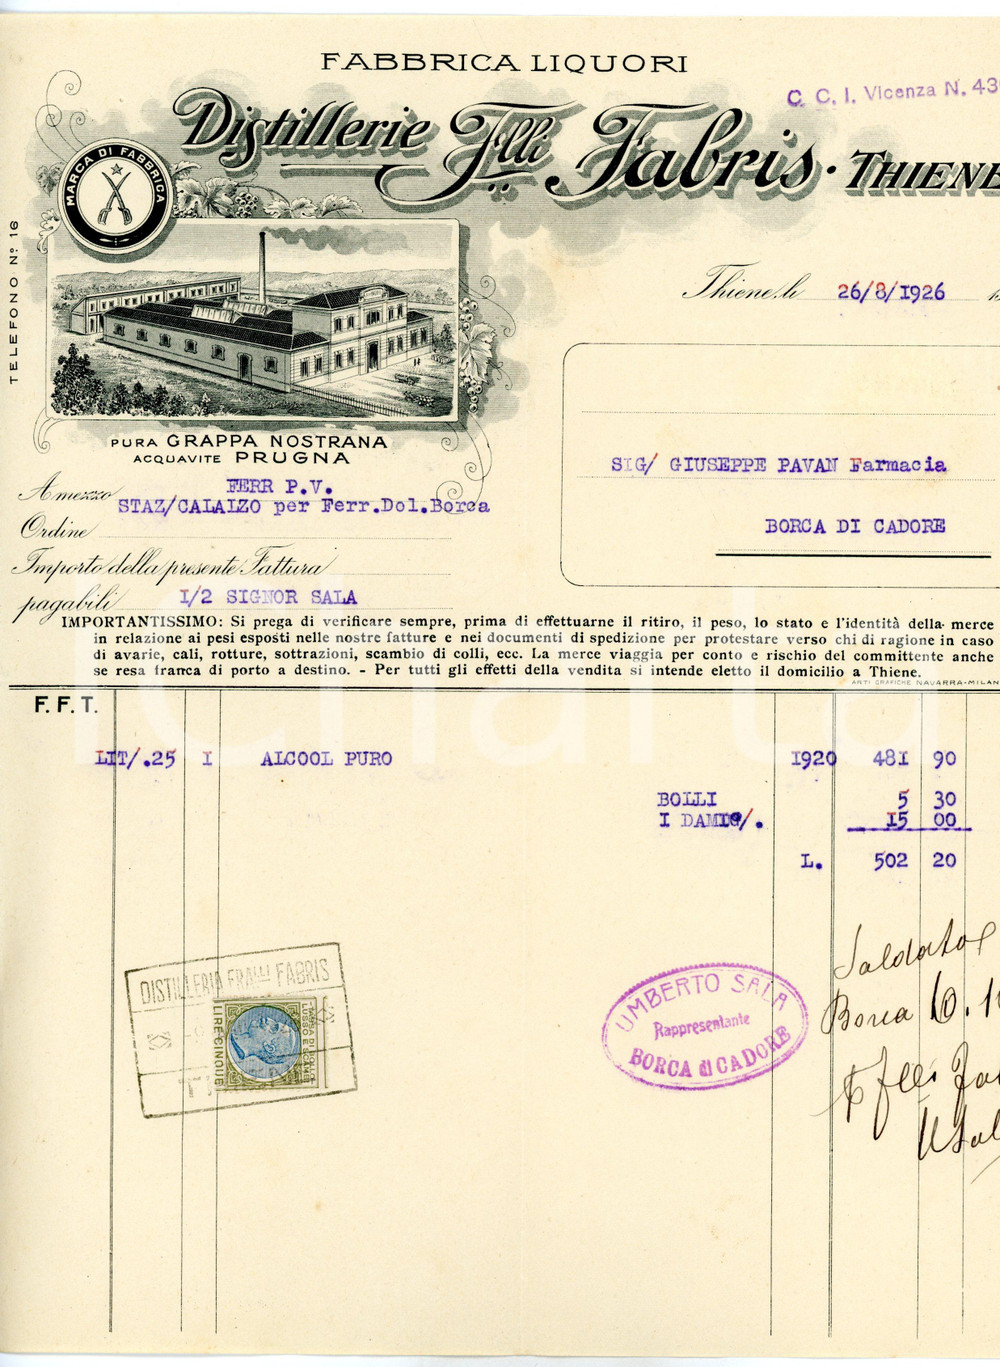 FABBRICA LIQUORI
C. C. I. Vicenza N. 43
Distillerie Flli Fabris · THIENE
MARCA DI FABBRICA
TELEFONO Nº 16
Thiene, li 26/8/1926
PURA GRAPPA NOSTRANA
ACQUAVITE PRUGNA
SIG/ GIUSEPPE PAVAN Farmacia
BORCA DI CADORE
A mezzo FERR P.V.
STAZ/CALALZO per Ferr.Dol.Borca
Ordine
Importo della presente Fattura
pagabili I/2 SIGNOR SALA
IMPORTANTISSIMO: Si prega di verificare sempre, prima di effettuarne il ritiro, il peso, lo stato e l'identità della merce
in relazione ai pesi esposti nelle nostre fatture e nei documenti di spedizione per protestare verso chi di ragione in caso
di avarie, cali, rotture, sottrazioni, scambio di colli, ecc. La merce viaggia per conto e rischio del committente anche
se resa franca di porto a destino. - Per tutti gli effetti della vendita si intende eletto il domicilio a Thiene.
ARTI GRAFICHE NAVARRA-MILAN
F. F. T.
LIT/.25 I ALCOOL PURO 1920 481 90
BOLLI 5 30
I DAMIG/. 15 00
L. 502 20
DISTILLERIA FRALLI FABRIS
TASSA DI BOLLO
LUSSO E SCAMBI
LIRE CINQUE
UMBERTO SALA
Rappresentante
BORCA di CADORE
Saldato
Borca 10.
Flli